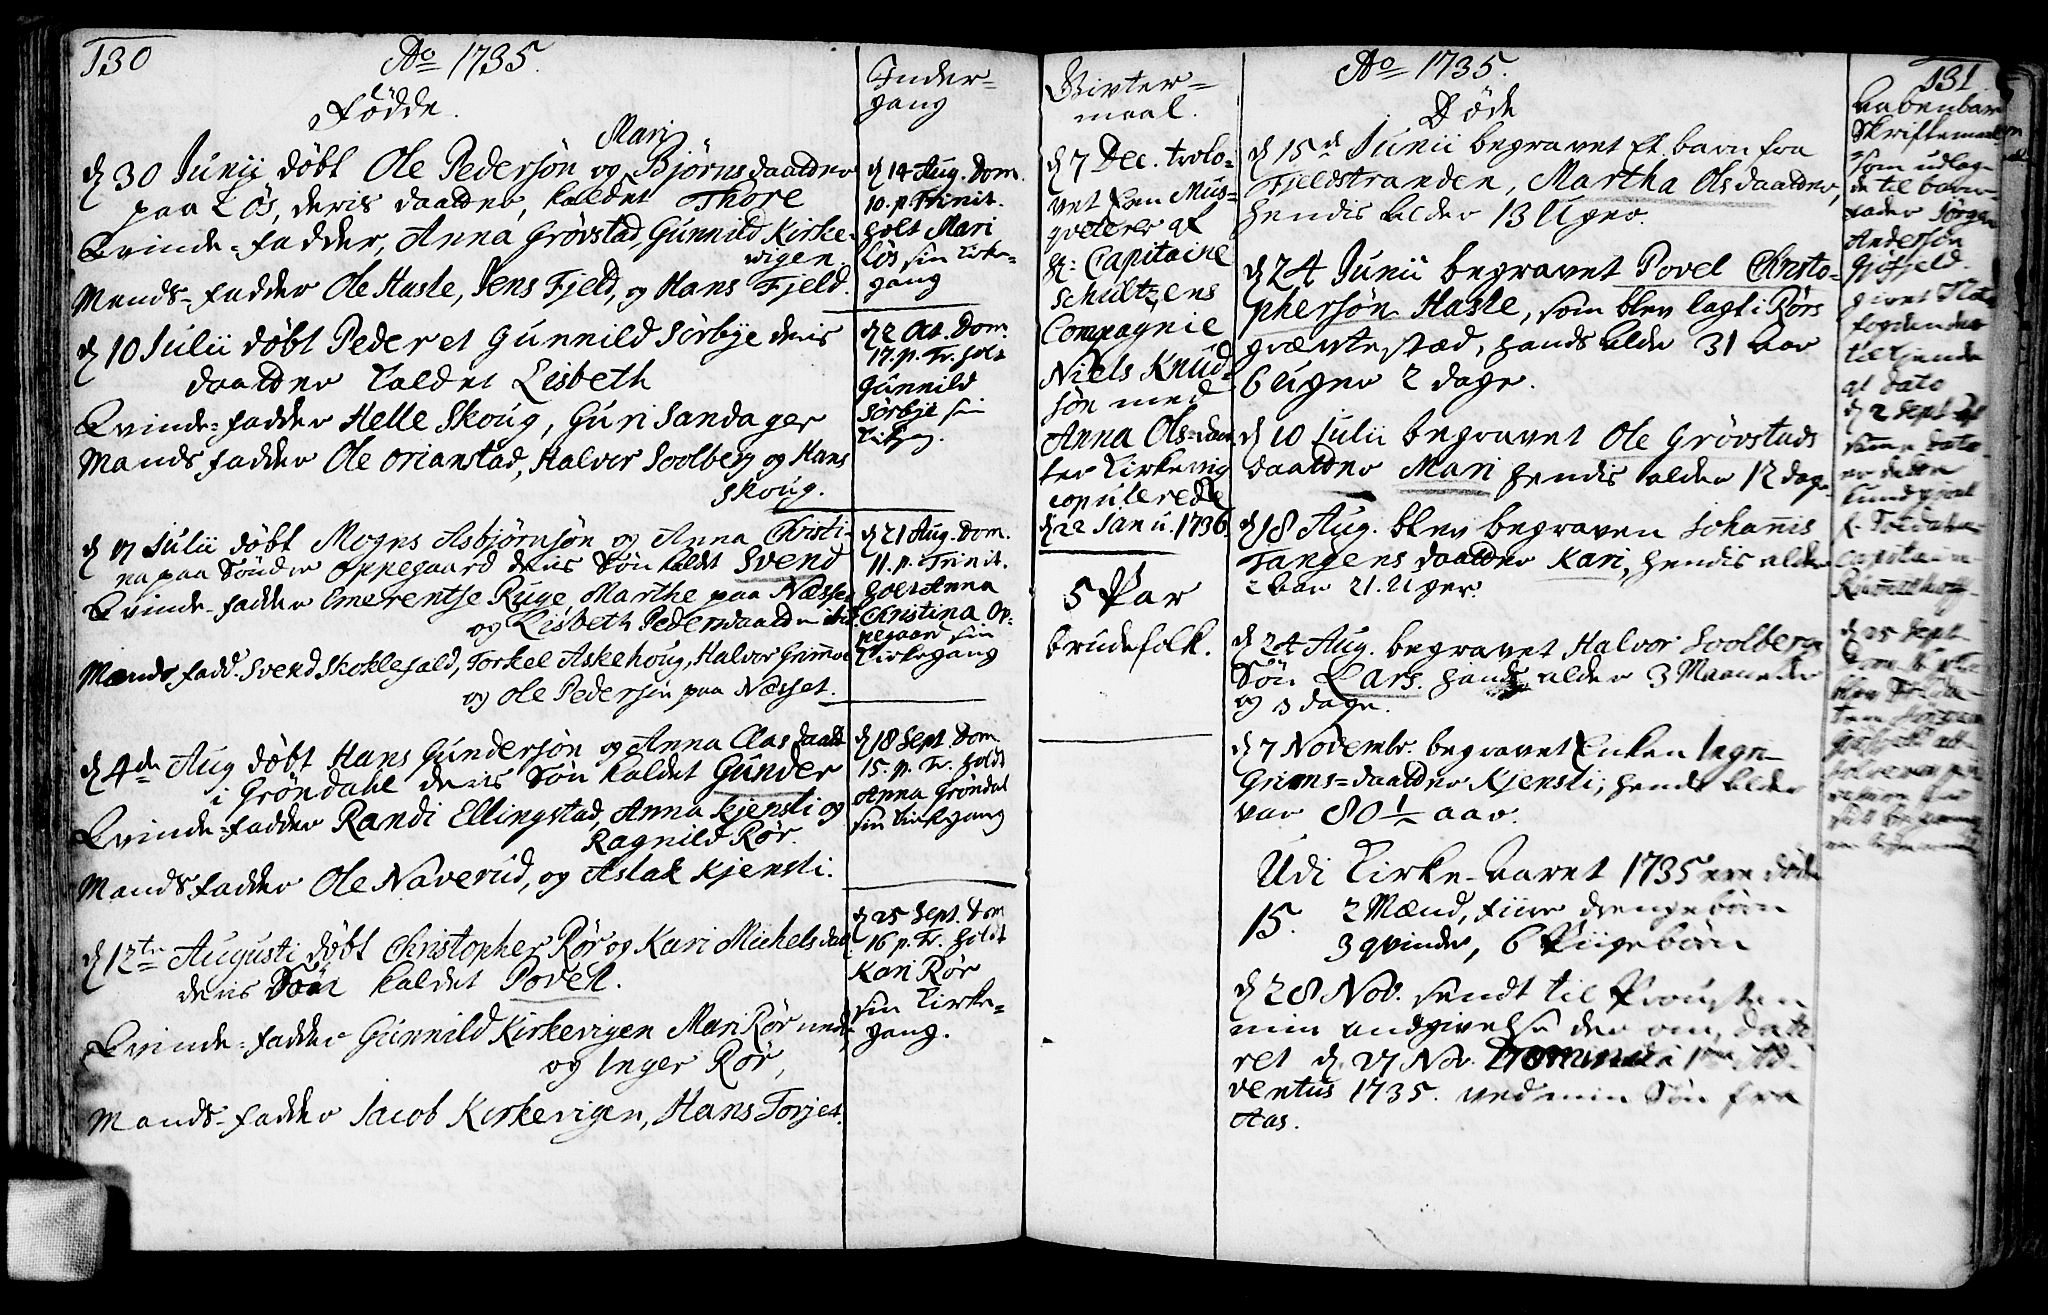 130
Ao 1735.
Fødde.
Mari
d 30 Junii døbt Ole Pedersøn og Bjørns daatter
paa Løs, deris daatter, kaldet Thore
Qvinde-fadder, Anna Grøvstad, Gunnild Kirke-
vigen.
Mands-fadder Ole Hasle, Jens Fjeld, og Hans Fjeld.
d 10 Julii døbt Peder et Gunnild Sørbye deris
daatter kaldet Lisbeth
Qvinde-fadder Helle Skoug, Guri Sandager
Mands fadder Ole orianstad, Halvor Soolberg og Hans
Skoug.
d 17 Julii døbt Mogns Asbjørnsøn og Anna Christi-
na paa Sønder Oppegaard deris Søn kaldt Svend
Qvinde-fadder Emerentse Ruge Marthe paa Næsset
og Lisbeth Pedersdaatter
Mands fadd. Svend Skoklefald, Torkel Askehoug, Halvor
og Ole Pedersøn paa Næsset.
d 4de Aug døbt Hans Gundersøn og Anna Clas daatt
i Grøndahl deris Søn kaldet Gunder
Qvinde-fadder Randi Ellingstad, Anna Kjensli og
Ragnild Rør.
Mands fadder Ole Naverud, og Aslak Kjensli.
d 12te Augusti døbt Christopher Rør og Kari Michels daa
deris Søn kaldet Povel.
Qvinde-fadder Gunnild Kirkevigen Mari Rør
og Inger Rør,
Mands-fadder Jacob Kirkevigen, Hans Torjes.
Inder-
gang
d 14 Aug. Dom.
10. p. Trinit.
holt Mari
Løs sin kirke-
gang
d 2 Oct. Dom.
17. p. Tr. holt
Gunnild
Sørbye sin
d 21 Aug. Dom.
11. p. Trinit.
holt Anna
Christina Op-
pegaard sin
Kirkegang
d 18 Sept. Dom
15. p. Tr. holdt
Anna Grøndal
sin kirkgang
d 25 Sept. Dom
16 p. Tr. holdt
Kari Rør
sin Kirke-
gang.
Vivter-
maal.
d 7 Dec. trolo-
vet En Mus-
qveterer af
Hr: Capitaine
Schultzens
Compagnie
Niels Knud-
søn med
Anna Ols-daa
ter Kirkevig
copulerede
d 22 Janu. 1736.
5 Par
brudefolk.
Ao 1735.
Døde
d 15d Junii begravet Et barn fra
Fjeldstranden, Martha Ols daatter,
hendis alder 13 Uger.
d 24 Junii begravet Povel Christo-
phersøn Hasle, som blev lagt i Rørs
hands alder 31 aar
6 uger 2 dage.
d 10 Julii begravet Ole Grøvstads
daatter Mari hendis alder 12 dage
d 18 Aug. blev begraven Johannis
Tangens daatter Kari, hendis alder
2 aar 21. Uger.
d 24 Aug. begravet Halvor Soolbergs
Søn Lars. hands alder 3 Maaneder
og 3 dage.
d 7 Novembr. begravet Enken Ingri
Grims-daatter Kjensli, hends alder
var 80 1/2 aar.
Udi Kirke-Aaret 1735 ere døde
15. 2 Mænd, fiire drengebørn
3 qvinder, 6 Piigebørn
d 28 Nov. sendt til Prousten
min andgivelse der om, date
ret d. 27 Nov. Dominica 1ma Ad-
ventus 1735. ved min Søn fra
Aas.
131
Aabenbare
Skriftemaal
som udlag-
de til barn-
fader Jørgen
Andersøn
Gjøfjeld.
givet
fogden
til
af dato
d 2 Sept
dato
d 25 Sept